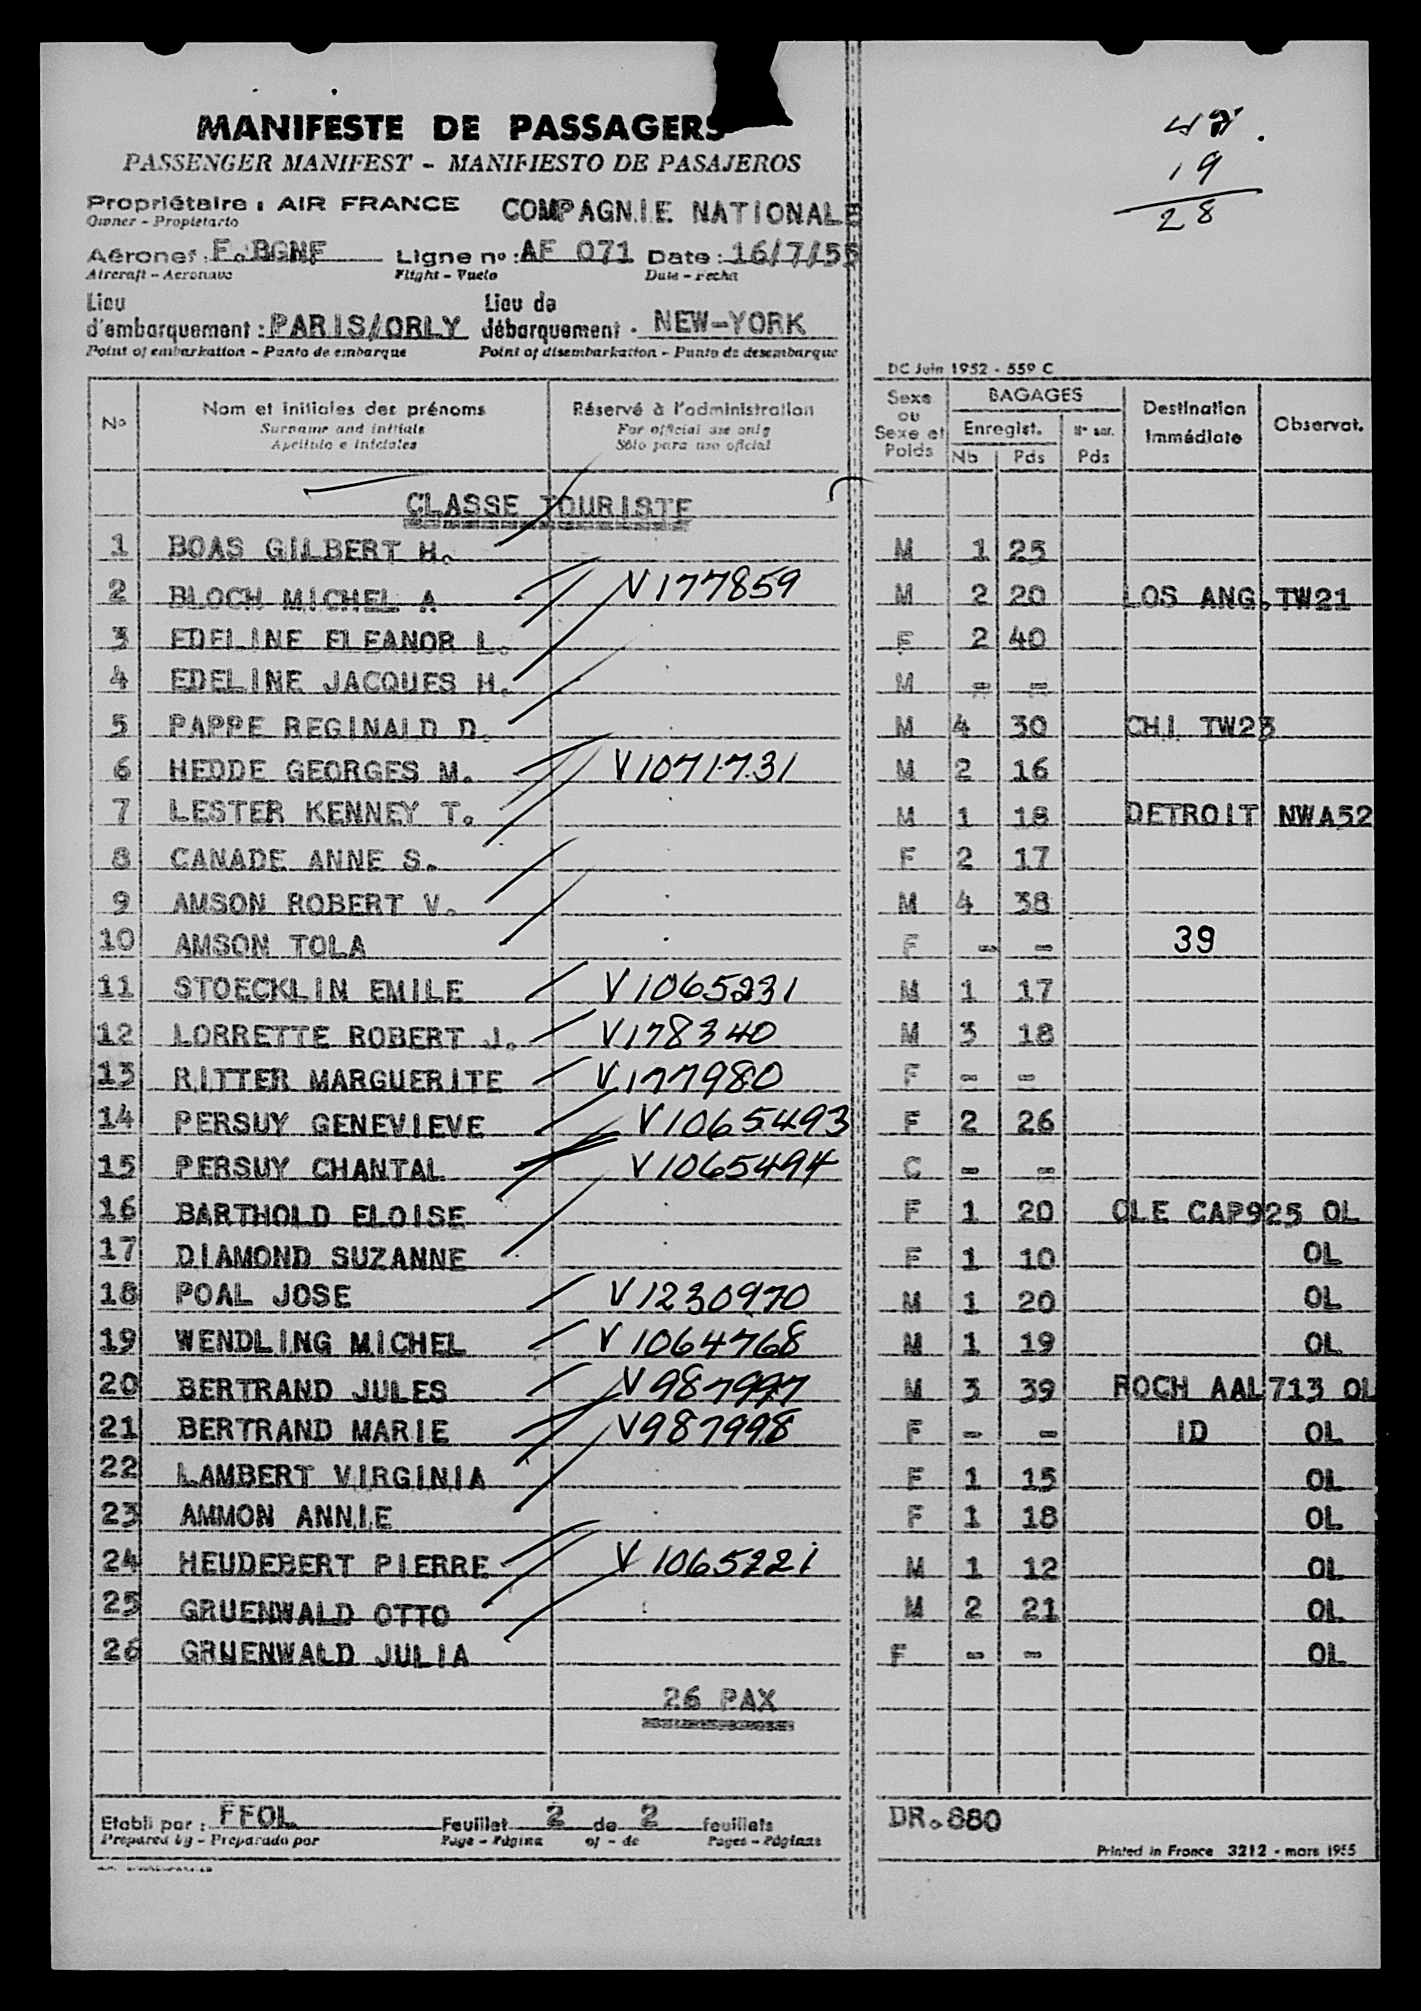 MANIFESTE DE PASSAGERS
PASSENGER MANIFEST - MANIFIESTO DE PASAJEROS
Propriétaire : AIR FRANCE COMPAGNIE NATIONALE
Owner - Propietario
Aéronef : F.BGNF Ligne nº : AF 071 Date : 16/7/55
Aircraft - Aeronave Flight - Vuelo Date - Fecha
Lieu d'embarquement : PARIS/ORLY Lieu de débarquement : NEW-YORK
Point of embarkation - Punto de embarque Point of disembarkation - Punto de desembarque
19
28
DC Juin 1952 - 559 C
Nº Nom et initiales des prénoms Réservé à l'administration Sexe ou Sexe et Poids BAGAGES Enregist. Nb Pds Nº enr. Pds Destination Immédiate Observat.
Surname and initials For official use only
Apellido e iniciales Sólo para uso oficial
CLASSE TOURISTE
1 BOAS GILBERT H. M 1 25
2 BLOCH MICHEL A V177859 M 2 20 LOS ANG. TW21
3 EDELINE ELEANOR L. F 2 40
4 EDELINE JACQUES H. M - -
5 PAPPE REGINALD D. M 4 30 CHI TW23
6 HEDDE GEORGES M. V1071731 M 2 16
7 LESTER KENNEY T. M 1 18 DETROIT NWA52
8 CANADE ANNE S. F 2 17
9 AMSON ROBERT V. M 4 38
10 AMSON TOLA F - - 39
11 STOECKLIN EMILE V1065231 M 1 17
12 LORRETTE ROBERT J. V178340 M 3 18
13 RITTER MARGUERITE V177980 F - -
14 PERSUY GENEVIEVE V1065493 F 2 26
15 PERSUY CHANTAL V1065494 C - -
16 BARTHOLD ELOISE F 1 20 CLE CAP925 OL
17 DIAMOND SUZANNE F 1 10 OL
18 POAL JOSE V1230970 M 1 20 OL
19 WENDLING MICHEL V1064768 M 1 19 OL
20 BERTRAND JULES V987997 M 3 39 ROCH AAL713 OL
21 BERTRAND MARIE V987998 F - - ID OL
22 LAMBERT VIRGINIA F 1 15 OL
23 AMMON ANNIE F 1 18 OL
24 HEUDEBERT PIERRE V1065221 M 1 12 OL
25 GRUENWALD OTTO M 2 21 OL
26 GRUENWALD JULIA F - - OL
26 PAX
Etabli par : FFOL Feuillet 2 de 2 feuillets DR.880
Prepared by - Preparado por Page - Página of - de Pages - Páginas
Printed in France 3212 - mars 1955